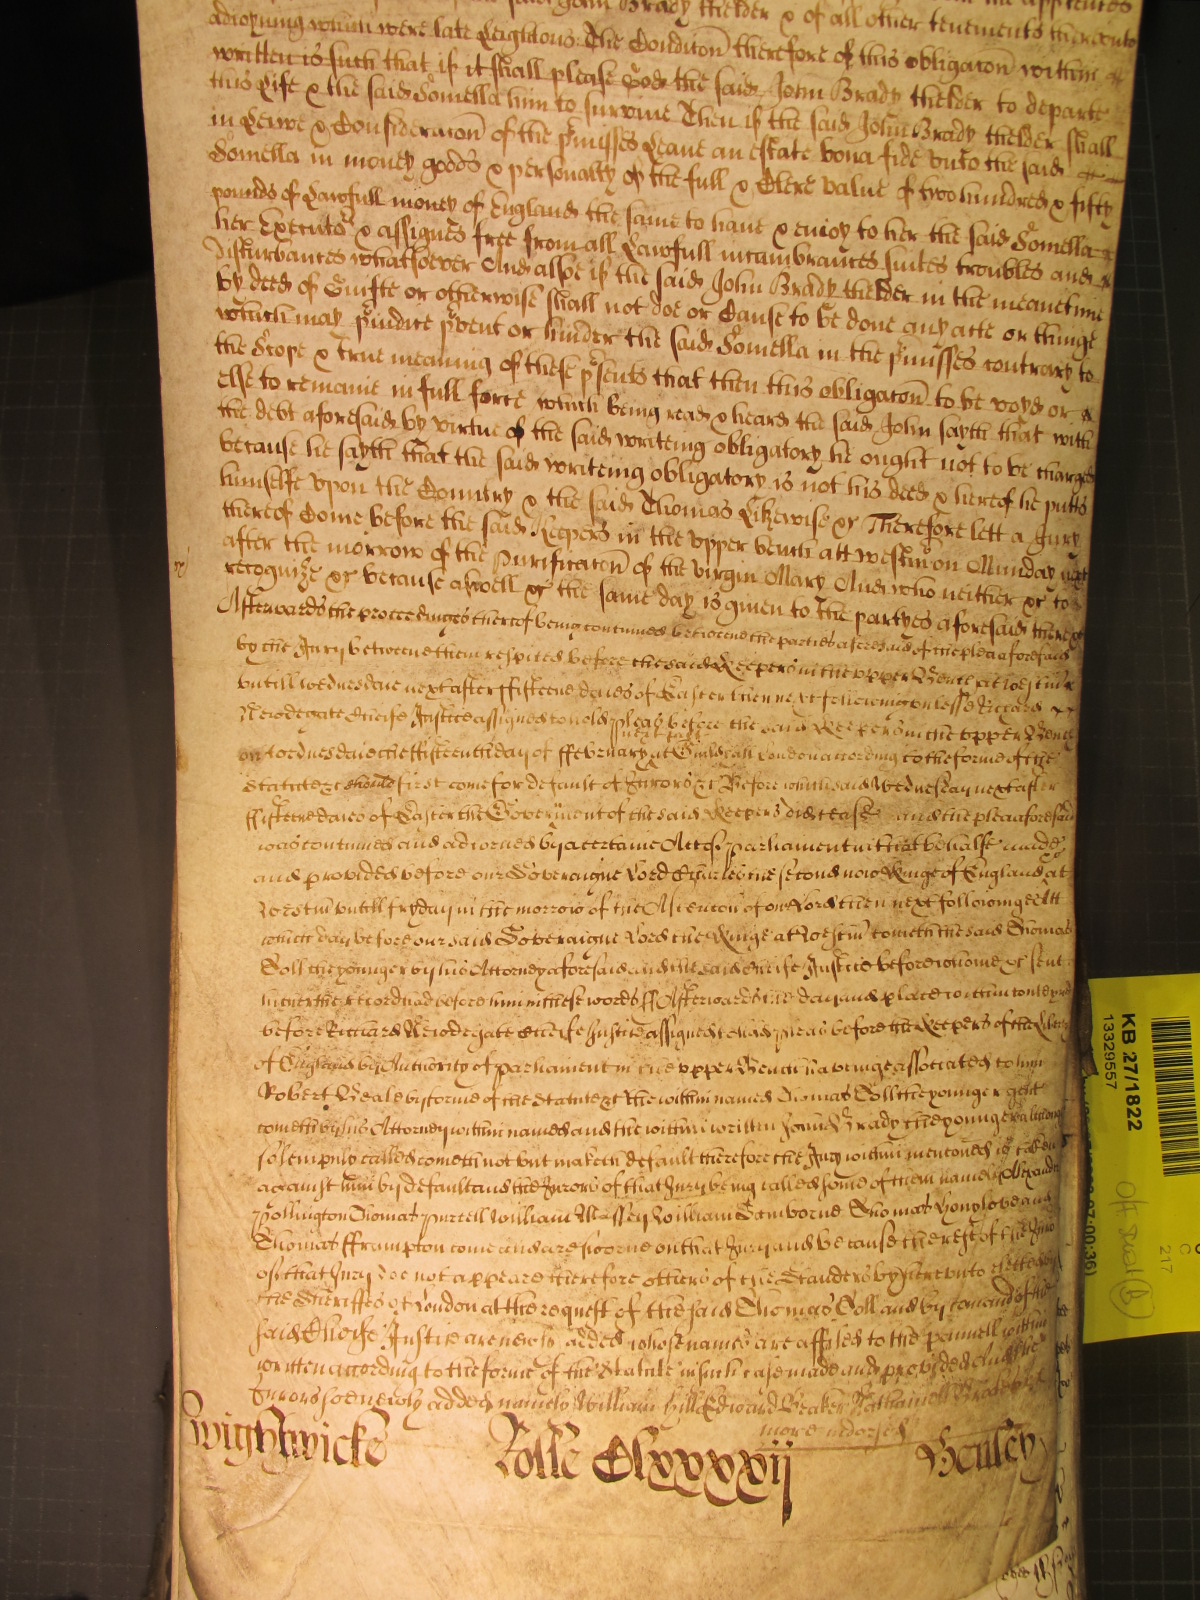 said John Brady thelder & of all other tenements thereunto
adioyning which were late Leightons. The Condicon therefore of this obligacon within
written is such that if it shall please God the said John Brady thelder to departe
this Life & the said Domella him to survive Then if the said John Brady thelder shall
in Leiwe & Consideracon of the pmisses Leave an estate bona fide unto the said
Domella in money goods & personalty of the full & Clere value of two hundred & fifty
pounds of Lawfull money of England the same to have & enioy to her the said Domella
her Executos & assignes free from all Lawfull incumbrances suites troubles and
disturbances whatsoever And alsoe if the said John Brady thelder in the meanetime
by deed of Guifte or otherwise shall not doe or Cause to be done any acte or thinge
which may piudice pvent or hinder the said Domella in the pmisses contrary to
the Scope & true meaning of these psents that then this obligacon to be voyd or
else to remaine in full force which being read & heard the said John sayth that with
the debt aforesaid by virtue of the said writeing obligatory he ought not to be charged
because he sayth that the said writeing obligatory is not his deed & hereof he putts
himselfe upon the Country & the said Thomas Likewise &c Therefore lett a Jury
thereof Come before the said Keepers in the upper bench att westm on Munday next
after the morrow of the Purificacon of the virgin Mary And who neither &c to
recognize &c because aswell &c the same day is given to the partyes aforesaid there &c
Afterwards the proceedinges thereof being continued betweene the parties aforesaid of the plea aforesaid
by the Jury betweene them respited before the said Keepers in the upper Bench at westm
untill wednesdaie next after fifteene daies of Easter then next following unlesse Richard
Newdegate Cheife Justice assigned to hold pleas before the said Keepers in the upper Bench
on wednesdaie the fifteenth day of ffebruary at Guildhall London according to the forme of the
Statute &c should first come for default of Jurors &c Before which said Wednesday next after
fifteene daies of Easter the Goverment of the said Keepers did cease and the plea aforesaid
was continued and adiorned by a certaine Act of parliament in that behalfe made
and provided before our Soveraigne Lord Charles the second now Kinge of England at
Westm untill fryday in the morrow of the Ascencon of our Lord then next followinge Att
which day before our said Soveraigne Lord the Kinge at Westm cometh the said Thomas
Coll the younger by his Attorney aforesaid and the said Cheife Justice before whome &c sent
hither the record had before him in these words ss Afterwards the day and place within conteyned
before Richard Newdegate Cheife Justice assigned to hold pleas before the Keepers of the Liberty
of England by Authority of parliament in the upper Bench haveinge associated to him
Robert Beale by forme of the Statute &c the within named Thomas Coll the younger gent
cometh by his Attorney within named and the within written John Brady the younger although
solempnly called cometh not but maketh default therefore the Jury within mencioned is taken
against him by default and the Jurors of that Jury being called some of them namely Alexander
Pollington Thomas Purcell William Massey William Samborne Thomas Honylove and
Thomas Frampton come and are sworne on that Jury and because the rest of the Juro
of that Jury doe not appeare therefore others of the Standers by hereunto elected by
the Sheriffes of London at the request of the said Thomas Coll and by comand of the
said Cheife Justice are newly added whose names are affiled to the pannell within
written according to the forme of the Statute in such case made and provided And the
Jurors soe newly added namely William Hill Edward Beaker Nathaniell
more indorsed
Wightwicke Rolle Clxxxxij Henley
KB 27/1822
13329557
217